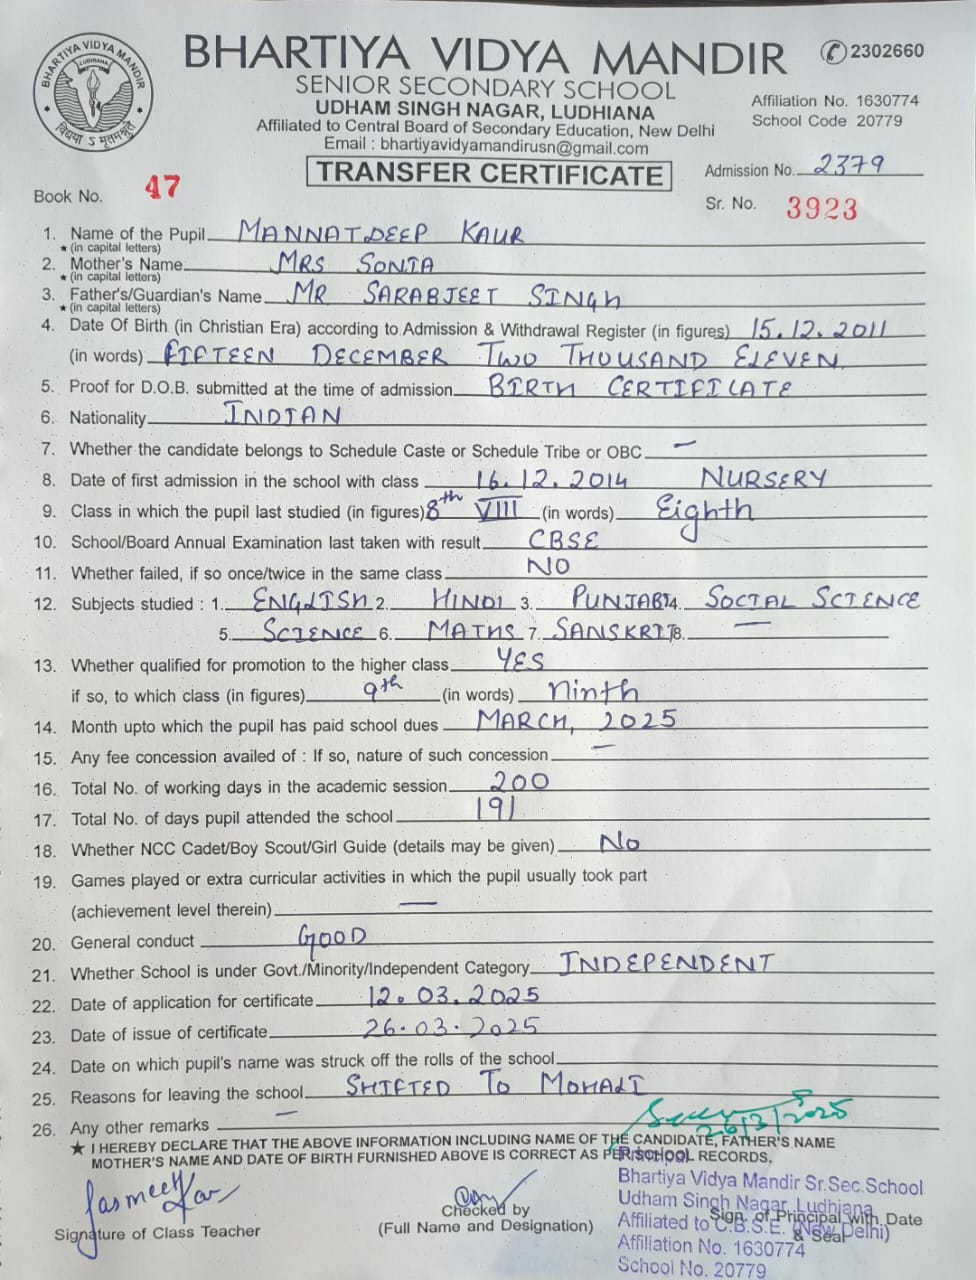 BHARTIYA VIDYA MANDIR
LUDHIANA
विद्यया ऽ मृतमश्नुते
BHARTIYA VIDYA MANDIR ✆2302660
SENIOR SECONDARY SCHOOL
UDHAM SINGH NAGAR, LUDHIANA
Affiliation No. 1630774
Affiliated to Central Board of Secondary Education, New Delhi
School Code 20779
Email : bhartiyavidyamandirusn@gmail.com
TRANSFER CERTIFICATE
Admission No. 2379
Book No. 47
Sr. No. 3923
1. Name of the Pupil MANNATDEEP KAUR
★(in capital letters)
2. Mother's Name MRS SONIA
★(in capital letters)
3. Father's/Guardian's Name MR SARABJEET SINGH
★(in capital letters)
4. Date Of Birth (in Christian Era) according to Admission & Withdrawal Register (in figures) 15.12.2011
(in words) FIFTEEN DECEMBER TWO THOUSAND ELEVEN
5. Proof for D.O.B. submitted at the time of admission BIRTH CERTIFICATE
6. Nationality INDIAN
7. Whether the candidate belongs to Schedule Caste or Schedule Tribe or OBC —
8. Date of first admission in the school with class 16.12.2014 NURSERY
9. Class in which the pupil last studied (in figures) 8th VIII (in words) Eighth
10. School/Board Annual Examination last taken with result CBSE
11. Whether failed, if so once/twice in the same class NO
12. Subjects studied : 1. ENGLISH 2. HINDI 3. PUNJABI 4. SOCIAL SCIENCE
5. SCIENCE 6. MATHS 7. SANSKRIT 8. —
13. Whether qualified for promotion to the higher class YES
if so, to which class (in figures) 9th (in words) ninth
14. Month upto which the pupil has paid school dues MARCH, 2025
15. Any fee concession availed of : If so, nature of such concession —
16. Total No. of working days in the academic session 200
17. Total No. of days pupil attended the school 191
18. Whether NCC Cadet/Boy Scout/Girl Guide (details may be given) No
19. Games played or extra curricular activities in which the pupil usually took part
(achievement level therein) —
20. General conduct GOOD
21. Whether School is under Govt./Minority/Independent Category INDEPENDENT
22. Date of application for certificate 12.03.2025
23. Date of issue of certificate 26.03.2025
24. Date on which pupil's name was struck off the rolls of the school
25. Reasons for leaving the school SHIFTED TO MOHALI
26. Any other remarks —
26/3/2025
★ I HEREBY DECLARE THAT THE ABOVE INFORMATION INCLUDING NAME OF THE CANDIDATE, FATHER'S NAME
MOTHER'S NAME AND DATE OF BIRTH FURNISHED ABOVE IS CORRECT AS PER SCHOOL RECORDS.
Principal
Bhartiya Vidya Mandir Sr.Sec.School
Udham Singh Nagar, Ludhiana
Affiliated to C.B.S.E. (New Delhi)
Affiliation No. 1630774
School No. 20779
Jasmeet Kaur
Signature of Class Teacher
Checked by
(Full Name and Designation)
Sign. of Principal with Date
& Seal